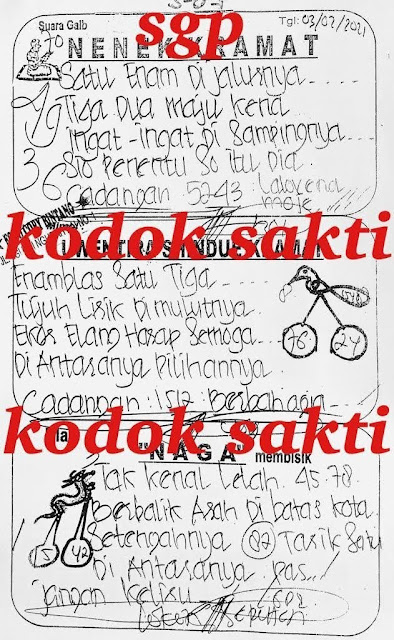 Suara Gaib
Tgl: 03/02/2021
sgp
NENEK KRAMAT
Satu Enam Di jalurnya
Tiga Dua maju kena
Ingat-ingat Di Sampingnya
Sio Penentu So itu Dia
Cadangan 5243
19
36
kodok sakti
Enamblas Satu Tiga
Tujuh Lisik Dimulutnya
Ekor Elang Harap Semoga
Di Antaranya Pilihannya
Cadangan : 1512 Berbahagia
76
24
kodok sakti
"NAGA" membisik
Tak kenal Lelah. 45.78
Berbalik Arah Di batas kota
Setengahnya 87 Tarik Satu
Di Antaranya pas
jangan keliru
15
42